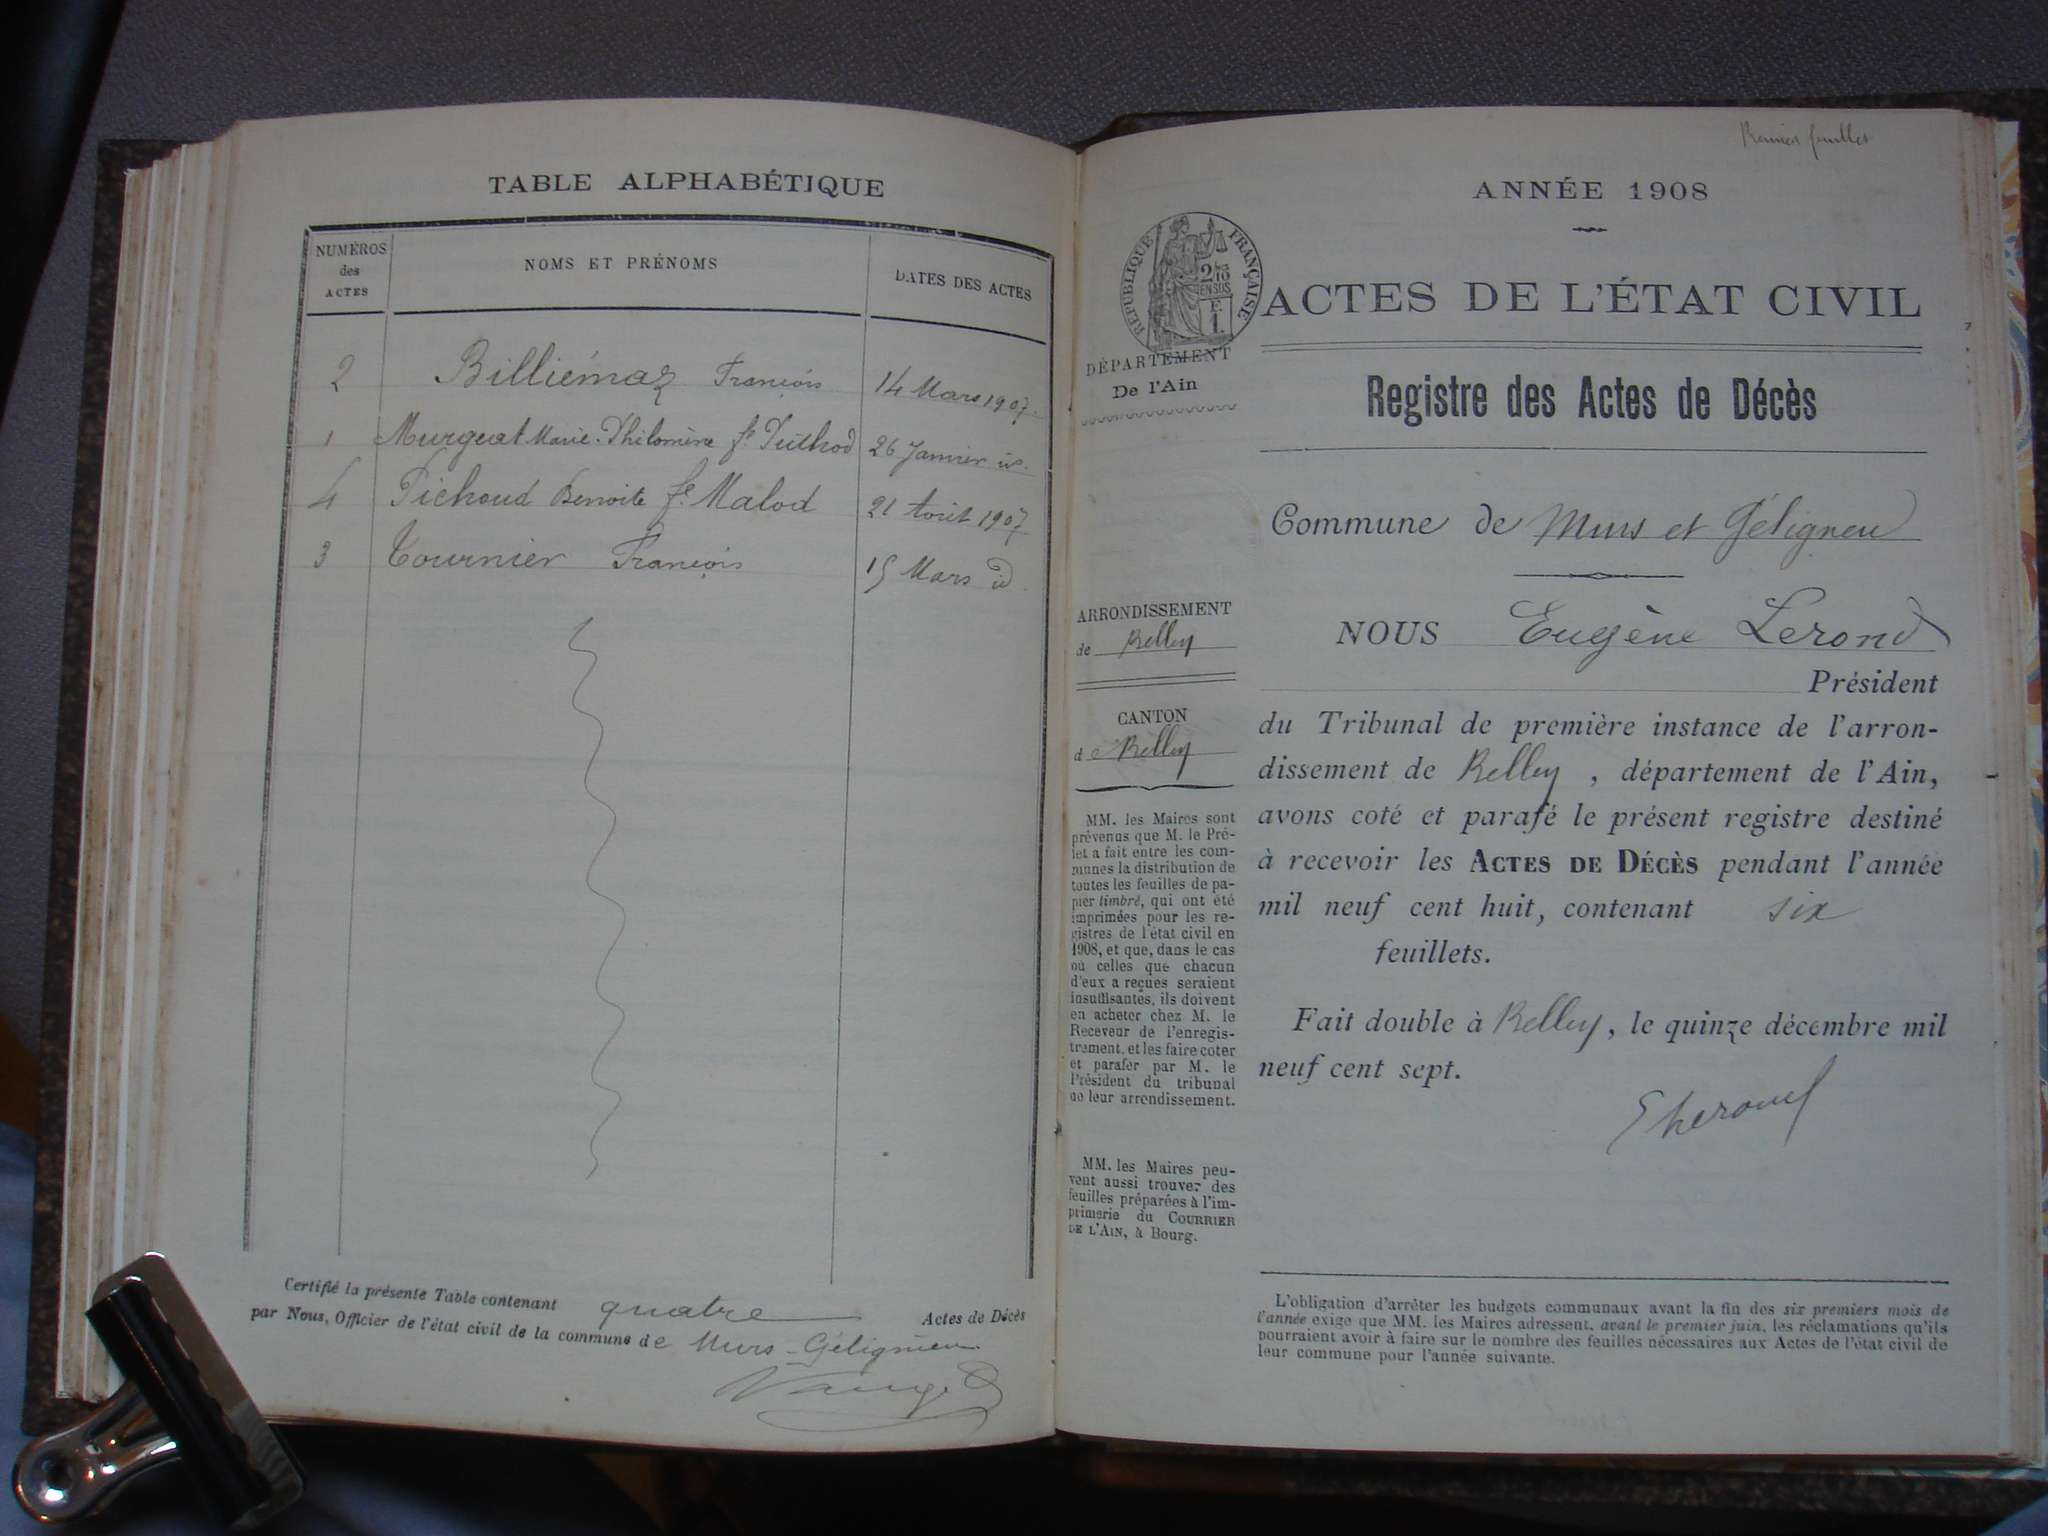 TABLE ALPHABÉTIQUE
NUMÉROS des ACTES
NOMS ET PRÉNOMS
DATES DES ACTES
2 Billiémaz François 14 Mars 1907.
1 Murguet Marie-Philomène fe Puthod 26 Janvier id.
4 Pichoud Benoite fe Malod 21 Août 1907
3 Tournier François 15 Mars id
Certifié la présente Table contenant quatre Actes de Décès
par Nous, Officier de l'état civil de la commune de Murs-Gélignieu
Premier feuillet
ANNÉE 1908
RÉPUBLIQUE FRANÇAISE
ACTES DE L'ÉTAT CIVIL
DÉPARTEMENT
De l'Ain
Registre des Actes de Décès
Commune de Murs et Géligneu
ARRONDISSEMENT
de Belley
CANTON
de Belley
MM. les Maires sont
prévenus que M. le Pré-
fet a fait entre les com-
munes la distribution de
toutes les feuilles de pa-
pier timbré, qui ont été
imprimées pour les re-
gistres de l'état civil en
1908, et que, dans le cas
où celles que chacun
d'eux a reçues seraient
insuffisantes, ils doivent
en acheter chez M. le
Receveur de l'enregis-
trement, et les faire coter
et parafer par M. le
Président du tribunal
de leur arrondissement.
MM. les Maires peu-
vent aussi trouver des
feuilles préparées à l'im-
primerie du COURRIER
DE L'AIN, à Bourg.
NOUS Eugène Lerond
Président
du Tribunal de première instance de l'arron-
dissement de Belley, département de l'Ain,
avons coté et parafé le présent registre destiné
à recevoir les ACTES DE DÉCÈS pendant l'année
mil neuf cent huit, contenant six
feuillets.
Fait double à Belley, le quinze décembre mil
neuf cent sept.
E Lerond
L'obligation d'arrêter les budgets communaux avant la fin des six premiers mois de
l'année exige que MM. les Maires adressent, avant le premier juin, les réclamations qu'ils
pourraient avoir à faire sur le nombre des feuilles nécessaires aux Actes de l'état civil de
leur commune pour l'année suivante.